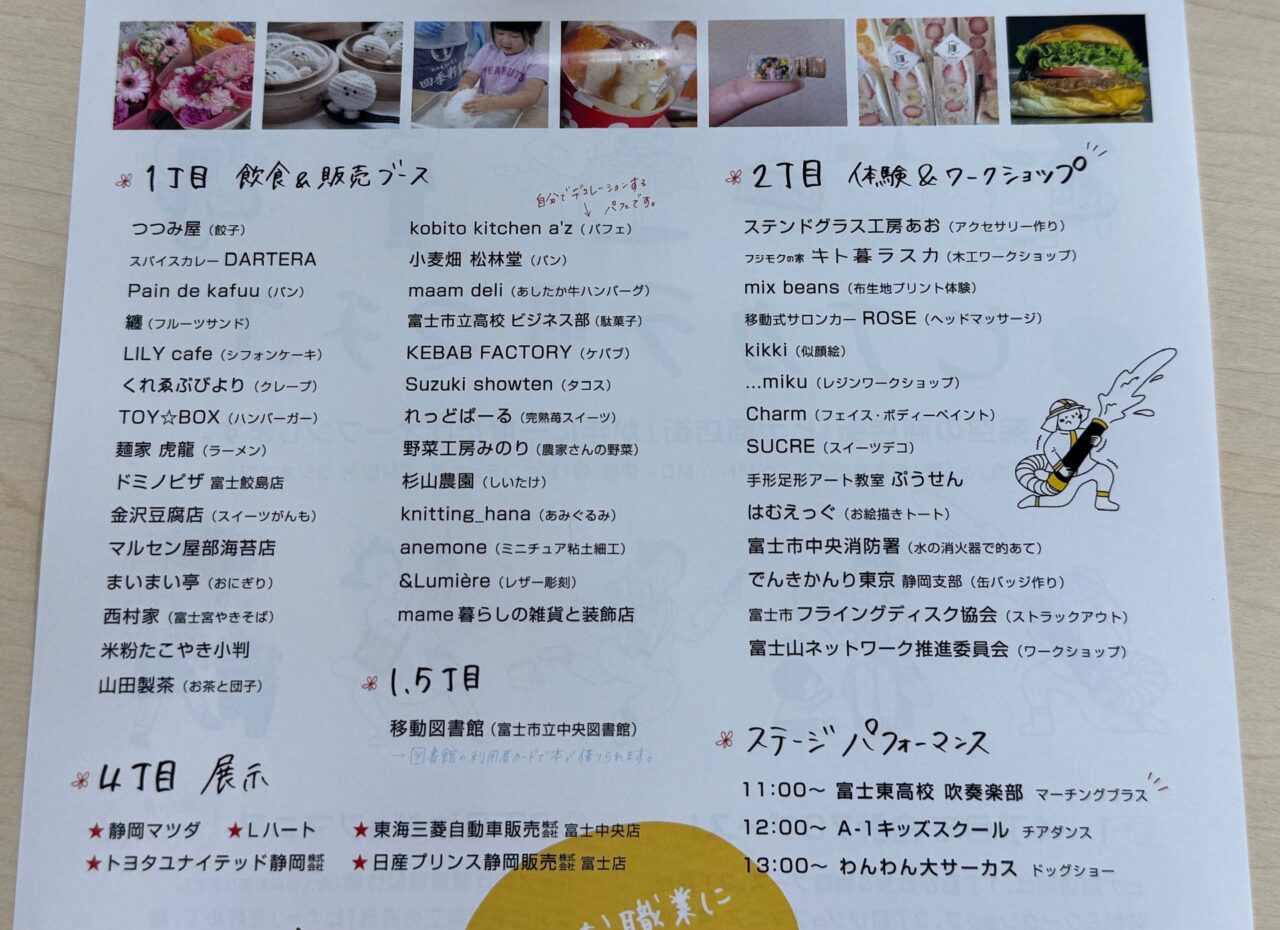 四季彩
PEANUTS
1丁目 飲食&販売ブース
つつみ屋（餃子）
スパイスカレー DARTERA
Pain de kafuu（パン）
纏（フルーツサンド）
LILY cafe（シフォンケーキ）
くれゑぷびより（クレープ）
TOY☆BOX（ハンバーガー）
麺家 虎龍（ラーメン）
ドミノピザ 富士鮫島店
金沢豆腐店（スイーツがんも）
マルセン屋部海苔店
まいまい亭（おにぎり）
西村家（富士宮やきそば）
米粉たこやき小判
山田製茶（お茶と団子）
自分でデコレーションする
↓ パフェです。
kobito kitchen a'z（パフェ）
小麦畑 松林堂（パン）
maam deli（あしたか牛ハンバーグ）
富士市立高校 ビジネス部（駄菓子）
KEBAB FACTORY（ケバブ）
Suzuki showten（タコス）
れっどぱーる（完熟苺スイーツ）
野菜工房みのり（農家さんの野菜）
杉山農園（しいたけ）
knitting_hana（あみぐるみ）
anemone（ミニチュア粘土細工）
&Lumière（レザー彫刻）
mame暮らしの雑貨と装飾店
1.5丁目
移動図書館（富士市立中央図書館）
→図書館の利用者カードで本が借りられます。
2丁目 体験&ワークショップ
ステンドグラス工房あお（アクセサリー作り）
フジモクの家 キト暮ラスカ（木工ワークショップ）
mix beans（布生地プリント体験）
移動式サロンカー ROSE（ヘッドマッサージ）
kikki（似顔絵）
...miku（レジンワークショップ）
Charm（フェイス・ボディーペイント）
SUCRE（スイーツデコ）
手形足形アート教室 ぷうせん
はむえっぐ（お絵描きトート）
富士市中央消防署（水の消火器で的あて）
でんきかんり東京 静岡支部（缶バッジ作り）
富士市 フライングディスク協会（ストラックアウト）
富士山ネットワーク推進委員会（ワークショップ）
4丁目 展示
★静岡マツダ ★Lハート ★東海三菱自動車販売株式会社 富士中央店
★トヨタユナイテッド静岡株式会社 ★日産プリンス静岡販売株式会社 富士店
ステージパフォーマンス
11:00〜 富士東高校 吹奏楽部 マーチングブラス
12:00〜 A-1キッズスクール チアダンス
13:00〜 わんわん大サーカス ドッグショー
職業に